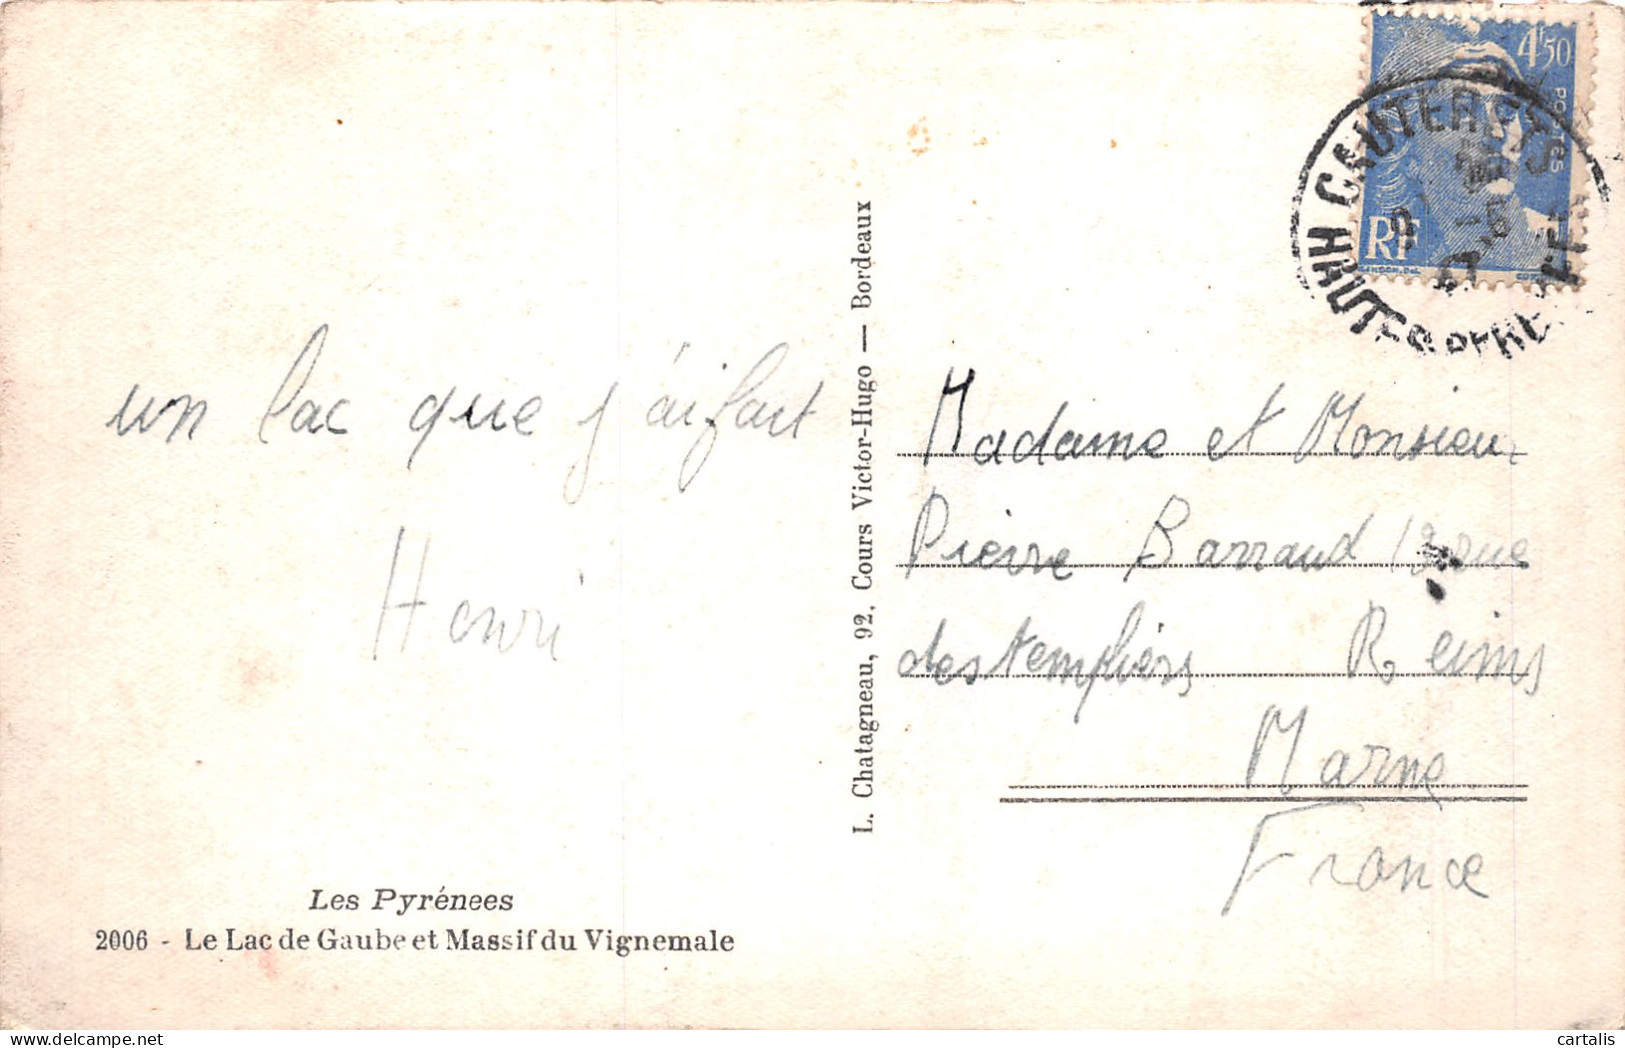 un lac que j'aifait
Henri
Les Pyrénees
2006 - Le Lac de Gaube et Massif du Vignemale
L. Chatagneau, 92, Cours Victor-Hugo — Bordeaux
4F50
POSTES
RF
GANDON. Del.
CAUTERETS
HAUTES PYRÉ
Madame et Monsieur
Pierre Barraud rue
des templiers Reims
Marne
France
cartalis